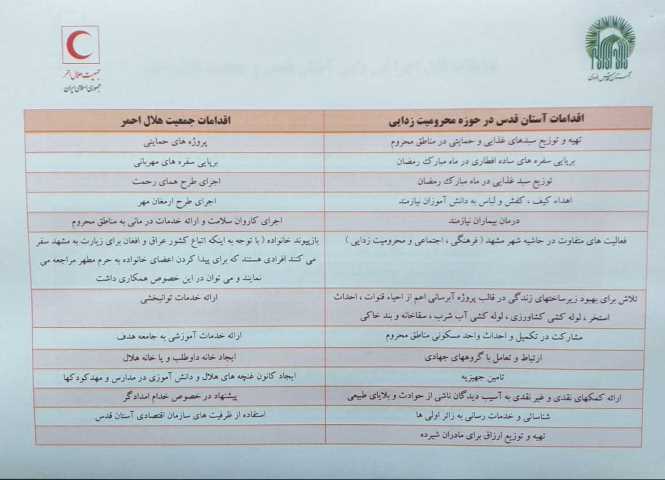 جمعیت هلال احمر
جمهوری اسلامی ایران
اقدامات آستان قدس در حوزه محرومیت زدایی
اقدامات جمعیت هلال احمر
تهیه و توزیع سبدهای غذایی و حمایتی در مناطق محروم
پروژه های حمایتی
برپایی سفره های ساده افطاری در ماه مبارک رمضان
برپایی سفره های مهربانی
توزیع سبد غذایی در ماه مبارک رمضان
اجرای طرح همای رحمت
اهداء کیف ، کفش و لباس به دانش آموزان نیازمند
اجرای طرح ارمغان مهر
درمان بیماران نیازمند
اجرای کاروان سلامت و ارائه خدمات در مانی به مناطق محروم
فعالیت های متفاوت در حاشیه شهر مشهد ( فرهنگی ، اجتماعی و محرومیت زدایی )
بازپیوند خانواده ( با توجه به اینکه اتباع کشور عراق و افغان برای زیارت به مشهد سفر
می کنند افرادی هستند که برای پیدا کردن اعضای خانواده به حرم مطهر مراجعه می
نمایند و می توان در این خصوص همکاری داشت
تلاش برای بهبود زیرساختهای زندگی در قالب پروژه آبرسانی اعم از احیاء قنوات ، احداث
استخر ، لوله کشی کشاورزی ، لوله کشی آب شرب ، سقاخانه و بند خاکی
ارائه خدمات توانبخشی
مشارکت در تکمیل و احداث واحد مسکونی مناطق محروم
ارائه خدمات آموزشی به جامعه هدف
ارتباط و تعامل با گروههای جهادی
ایجاد خانه داوطلب و یا خانه هلال
تامین جهیزیه
ایجاد کانون غنچه های هلال و دانش آموزی در مدارس و مهدکودکها
ارائه کمکهای نقدی و غیر نقدی به آسیب دیدگان ناشی از حوادث و بلایای طبیعی
پیشنهاد در خصوص خدام امدادگر
شناسائی و خدمات رسانی به زائر اولی ها
استفاده از ظرفیت های سازمان اقتصادی آستان قدس
تهیه و توزیع ارزاق برای مادران شیرده